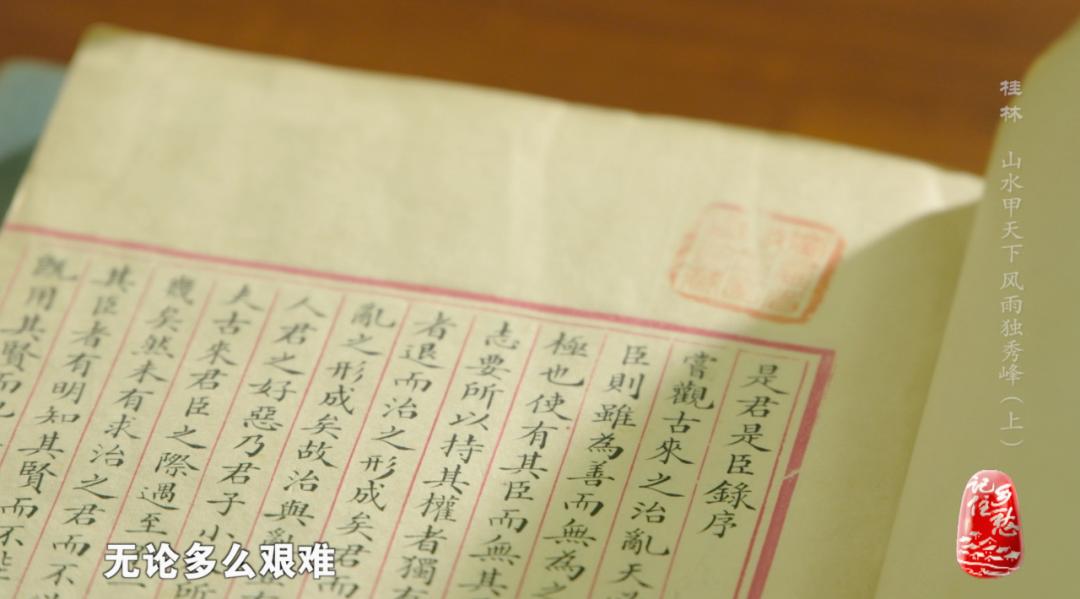 是君是臣錄序
嘗觀古來之治亂天
臣則雖為善而無為之
極也使有其臣而無其
志要所以持其權者獨
者退而治之形成矣君而
亂之形成矣故治與亂
人君之好惡乃君子小
夫古來君臣之際遇至
幾矣然未有求治之君而不
其臣者有明知其賢而不
既用其賢而
无论多么艰难
桂林 山水甲天下 风雨独秀峰（上）
记住乡愁